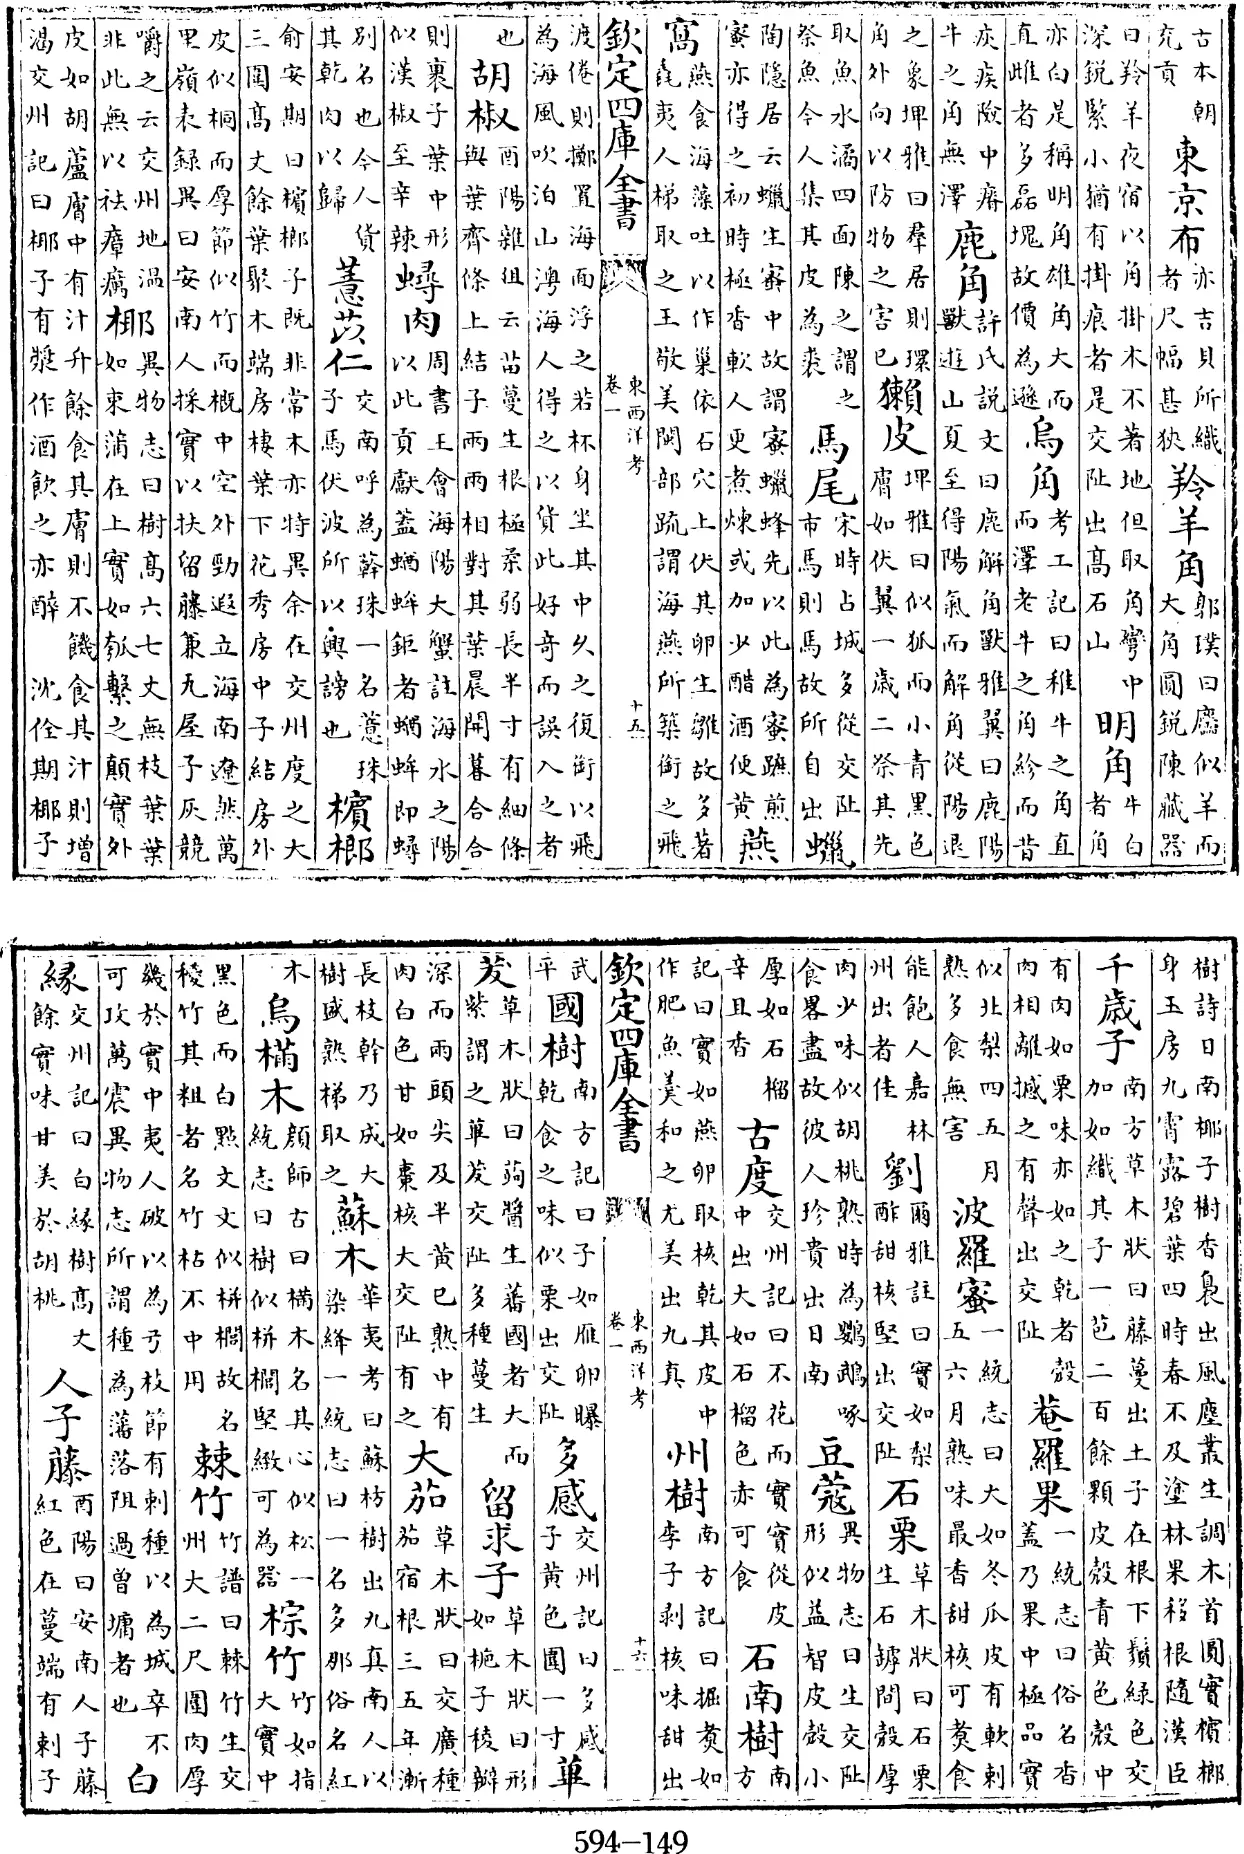 古本朝充貢東京布亦吉貝所織者尺幅甚狹羚羊角郭璞曰麢似羊而大角圓銳陳藏器
曰羚羊夜宿以角掛木不著地但取角彎中深銳緊小猶有掛痕者是交阯出高石山明角牛白者角
亦白是稱明角雄角大而直雌者多磊塊故價為遜烏角考工記曰稚牛之角直而澤老牛之角紾而昔
疢疾險中瘠牛之角無澤鹿角許氏說文曰鹿解角獸雅翼曰鹿陽獸遊山夏至得陽氣而解角從陽退
之象埤雅曰羣居則環角外向以防物之害已獺皮埤雅曰似狐而小青黑色膚如伏翼一歲二祭其先
取魚水潏四面陳之謂之祭魚今人集其皮為裘馬尾宋時占城多從交阯市馬則馬故所自出蠟
陶隱居云蠟生蜜中故謂蜜蠟蜂先以此為蜜蹠煎蜜亦得之初時極香軟人更煮煉或加少醋酒便黃燕
窩燕食海藻吐以作巢依石穴上伏其卵生雛故多著毳夷人梯取之王敬美閩部疏謂海燕所築銜之飛
欽定四庫全書 東西洋考 卷一 十五
渡倦則擲置海面浮之若杯身坐其中久之復銜以飛為海風吹泊山澳海人得之以貨此好奇而誤入之者
也胡椒酉陽雜俎云苗蔓生根極柔弱長半寸有細條與葉齊條上結子兩兩相對其葉晨開暮合合
則裹子葉中形似漢椒至辛辣蟳肉周書王會海陽大蟹註海水之陽以此貢獻蓋蝤蛑鉅者蝤蛑即蟳
別名也今人貨其乾肉以歸薏苡仁交南呼為簳珠一名薏珠子馬伏波所以興謗也檳榔
俞安期曰檳榔子既非常木亦特異余在交州度之大三圍高丈餘葉聚木端房棲葉下花秀房中子結房外
皮似桐而厚節似竹而概中空外勁遐立海南遼然萬里嶺表錄異曰安南人採實以扶留藤兼瓦屋子灰競
嚼之云交州地溫非此無以祛瘴癘椰異物志曰樹高六七丈無枝葉葉如束蒲在上實如瓠繫之顛實外
皮如胡蘆膚中有汁升餘食其膚則不饑食其汁則增渴交州記曰椰子有漿作酒飲之亦醉 沈佺期椰子
樹詩日南椰子樹香裊出風塵叢生調木首圓實檳榔身玉房九霄露碧葉四時春不及塗林果移根隨漢臣
千歲子南方草木狀曰藤蔓出土子在根下鬚綠色交加如織其子一苞二百餘顆皮殼青黃色殼中
有肉如栗味亦如之乾者殼肉相離撼之有聲出交阯菴羅果一統志曰俗名香蓋乃果中極品實
似北梨四五月熟多食無害波羅蜜一統志曰大如冬瓜皮有軟刺五六月熟味最香甜核可煑食
能飽人嘉林州出者佳劉爾雅註曰實如梨酢甜核堅出交阯石栗草木狀曰石栗生石罅間殼厚
肉少味似胡桃熟時為鸚鵡啄食畧盡故彼人珍貴出日南豆蔻異物志曰生交阯形似益智皮殼小
厚如石榴辛且香古度交州記曰不花而實實從皮中出大如石榴色赤可食石南樹南方
記曰實如燕卵取核乾其皮中作肥魚羹和之尤美出九真州樹南方記曰掘煑如李子剥核味甜出
欽定四庫全書 東西洋考 卷一 十六
武平國樹南方記曰子如雁卵曝乾食之味似栗出交阯多感交州記曰多感子黃色圍一寸蓽
茇草木狀曰蒟醬生蕃國者大而紫謂之蓽茇交阯多種蔓生留求子草木狀曰形如梔子稜瓣
深而兩頭尖及半黃已熟中有肉白色甘如棗核大交阯有之大茄草木狀曰交廣種茄宿根三五年漸
長枝幹乃成大樹盛熟梯取之蘇木華夷考曰蘇枋樹出九真南人以染絳一統志曰一名多那俗名紅
木烏樠木顏師古曰樠木名其心似松一統志曰樹似栟櫚堅緻可為器棕竹竹如指大實中
黑色而白點文文似栟櫚故名稜竹其粗者名竹枯不中用棘竹竹譜曰棘竹生交州大二尺圍肉厚
幾於實中夷人破以為弓枝節有刺種以為城卒不可攻萬震異物志所謂種為藩落阻過曽墉者也白
緣交州記曰白緣樹高丈餘實味甘美於胡桃人子藤酉陽曰安南人子藤紅色在蔓端有刺子
594-149